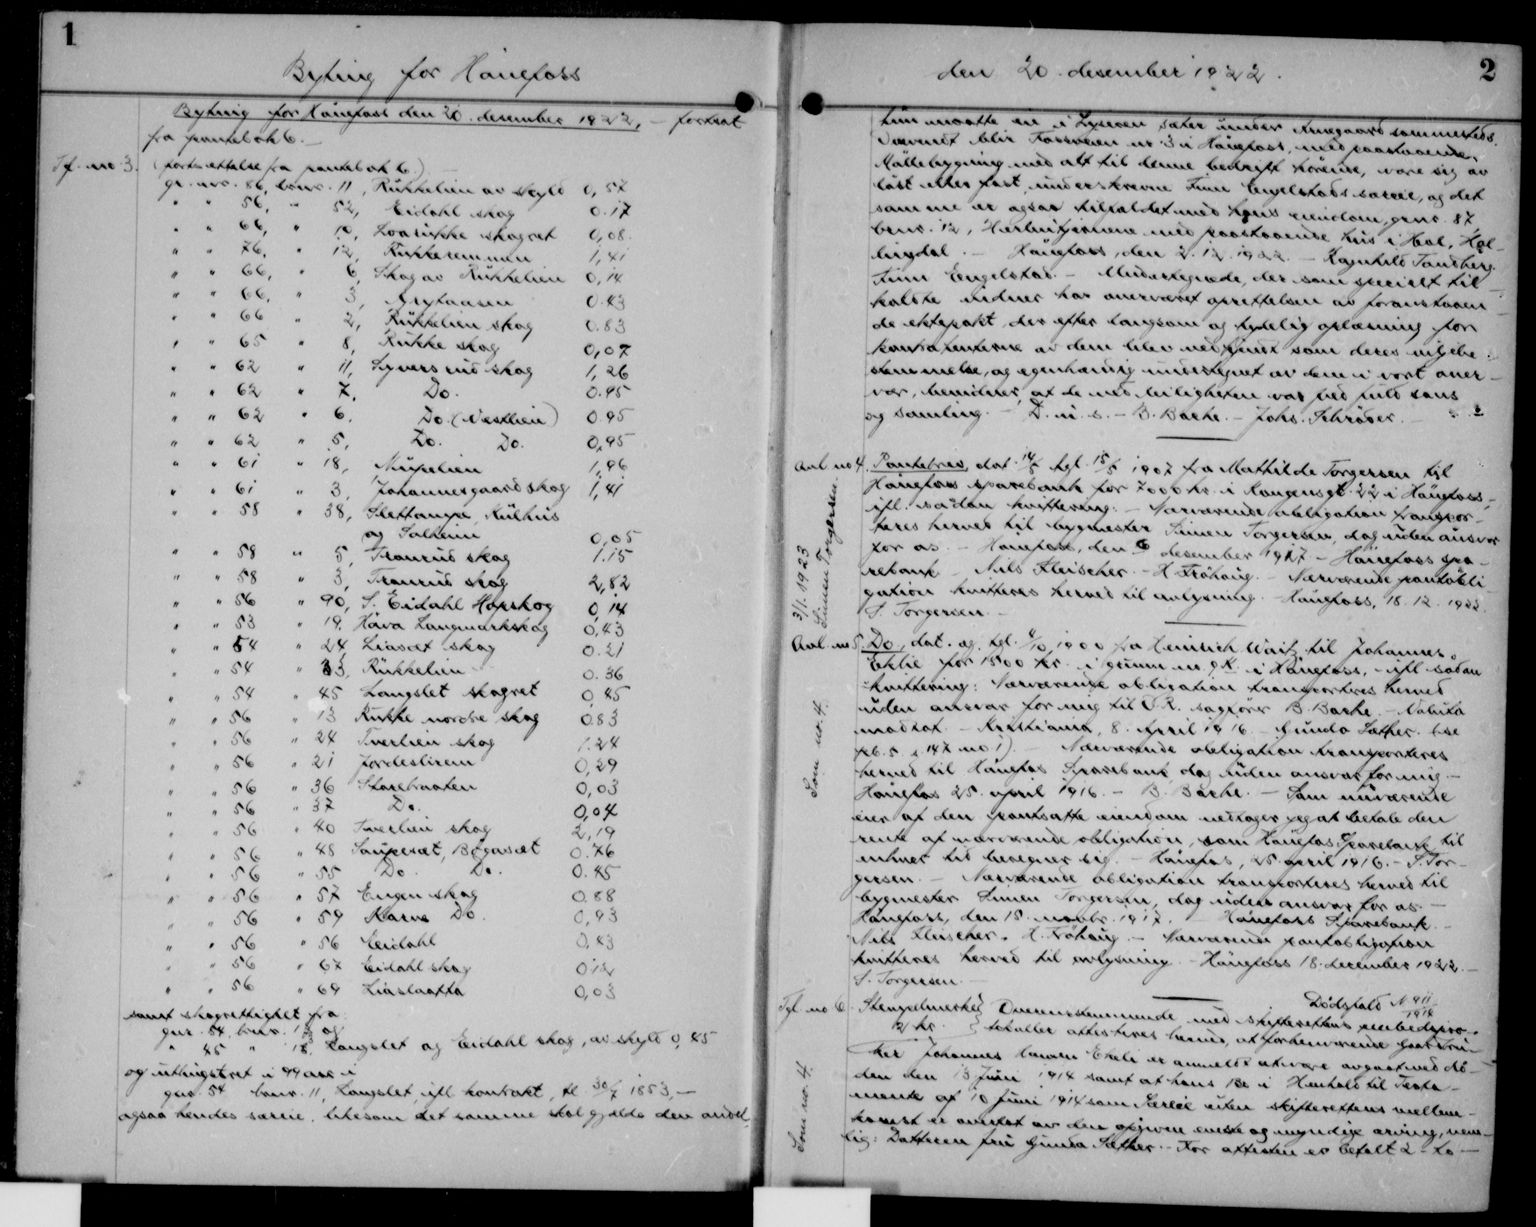 1
Byting for Hönefoss
Byting for Hönefoss den 20. desember 1922, — fortsat
fra pantebok 6. —
Tgl. no 3. (fortsættelse fra pantebok 6.) —
gr. nr. 86, brnr. 11, Rükkelien av skyld 0,57
" " 56, " 52, Eidahl skog 0.17
" " 66, " 10, Loaükke skogret 0,08.
" " 76, " 12, Rükkeremmen 1,41
" " 66, " 6, Skog av Rükkelien 0,14
" " 66, " 3, Grytaasen 0.43
" " 66 " 2, Rükkelien skog 0.83
" " 65 " 8, Rükke skog 0,07
" " 62 " 11, Syversrud skog 1,26
" " 62 " 7, Do. 0.95
" " 62 " 6. Do. (Vestlien) 0.95
" " 62 " 5, Do. Do. 0,95
" " 61 " 18, 1,96
" " 61 " 3, Johannesgaard skog 1,41
" " 58 " 38, Slettanga, Külhüs
og Solheim 0,05
" " 58 " 5, Tranrud skog 1.15
" " 58 " 3, Tranrud skog 2,82
" " 56 " 90, S. Eidahl Hapskog 0,14
" " 53 " 19, Håva Langmarkskog 0,43
" " 54 " 24, Liaset skog 0.21
" " 54 " 33, Rükkelien 0.36
" " 54 " 45 Langslet skogret 0,85
" " 56 " 13 Rükke nordre skog 0.83
" " 56 " 24 Tverlien skog 1.24
" " 56 " 21 Jordeslirem 0,29
" " 56 " 36 Starbraaten 0,03
" " 56 " 37 Do. 0,04
" " 56 " 40 Tverlien skog 2,19
" " 56 " 48 Saupeset, Bögaset 0.76
" " 56 " 55 Do Do. 0.85
" " 56 " 57 Engen skog 0.88
" " 56 " 59 Do. 0,93
" " 56 " 56 Eidahl 0,43
" " 56 " 67 Eidahl skog 0.12
" " 56 " 69 Liaslaatta 0,03
samt skogrettighet fra
gnr. 54, brnr. 13 og
" 45 " 18, Langslet og Eidahl skog, av skyld 0,85
og utingsteret i 99 aar i
gnr. 54 brnr. 11, Langslet, ifl kontrakt, tl 30/7 1853, —
ogsaa hendes særeie, likesom det samme skal gjælde den andel
2
den 20. desember 1922.
hun maatte eie i Lyseren sæter under Arnegaard sammesteds.
Derimot blir Fossveien nr 3 i Hönefoss, med paastaaende
Möllebygning med alt til denne bedrift hörende, være sig av
löst eller fast, underskrevne Finn Engelstads særeie, og det
samme er ogsaa tilfældet med hans eiendom, gnr. 87
brnr. 12, med paastaaende hus i Hol, Hal-
lingdal. — Hönefoss, den 2. 12. 1922. — Ragnhild Tandberg.
Finn Engelstad. — Undertegnede, der som specielt til-
kaldte vidner har overværet oprettelsen av foranstaaen-
de ektepakt, der efter langsom og tydelig oplæsning for
kontrahenterne av dem blev vedkjendt som deres viljebe-
stemmelse, og egenhændig undertegnet av dem i vort over-
vær, bevidner, at de ved leiligheten var ved fuld sans
og samling. — D. u. s. — B. Barke. — Johs. Schröder. —
Avl. no 4. Pantebrev, dat. 14/5 tgl. 15/5 1907 fra Mathilde Torgersen til
Hönefoss sparebank for 7000 kr. i Kongensgt. 22 i Hönefoss,
ifl. sådan kvittering: — Nærværende obligation transpor-
teres herved til bygmester Simen Torgersen, dog uden ansvar
for os. — Hönefoss, den 6 desember 1917 — Hönefoss spa-
rebank — Nils Fleischer. — H. Fröhaug. — Nærværende pantobli-
gation kvitteres herved til avlysning. Hönefoss, 18. 12. 1922.
S. Torgersen. —
3/1. 1923
Simen Torgersen.
Avl. no 5. Do, dat. og tgl. 4/10 1900 fra Heinrich Waitz til Johannes
Eklie for 1500 kr. i grunn no 9 K. i Hönefoss, ifl. sådan
kvittering: Nærværende obligation transporteres herved
uden ansvar for mig til O. R. sagförer B. Barke. — Valuta
modtat. — Kristiania, 8. april 1916. — Gunda Sæther. (se
pb. 5 s. 147 no 1). — Nærværende obligation transporteres
herved til Hönefos Sparebank dog uden ansvar for mig. —
Hönefos 25. april 1916. — B. Barke. — Som nuværende
eier af den pantsatte eiendom vedtager jeg at betale den
rente af nærværende obligation, som Hönefos Sparebank til
enhver tid beregner sig. — Hönefos, 25. april 1916. — S. Tor-
gersen. — Nærværende obligation transporteres herved til
bygmester Simen Torgersen, dog uden ansvar for os. —
Hönefoss, den 18. novbr. 1917. — Hönefoss Sparebank. —
Nils Fleischer. H. Fröhaug. — Nærværende pantobligation
kvitteres herved til avlysning. — Hönefoss 18. december 1922. —
S. Torgersen. —
Som no. 4.
Tgl. no 6. Stempelmerke 2 kr. Dödsfald N 911/1914
Overensstemmende med skifterettens
tokoller attesteres herved, at forhenværende gaardbru-
ker Johannes Eklie er anmeldt at være avgaat ved dö-
den den 13 Juni 1914 samt at hans bo i Henhold til Testa-
mente af 10 Juni 1914 som Særeie uten skifterettens mellem-
komst er overtat av den opgivne eneste og myndige arving, nem-
lig: Datteren fru Gunda Sæther. — For attesten er betalt 2 - to —
Som no. 4.